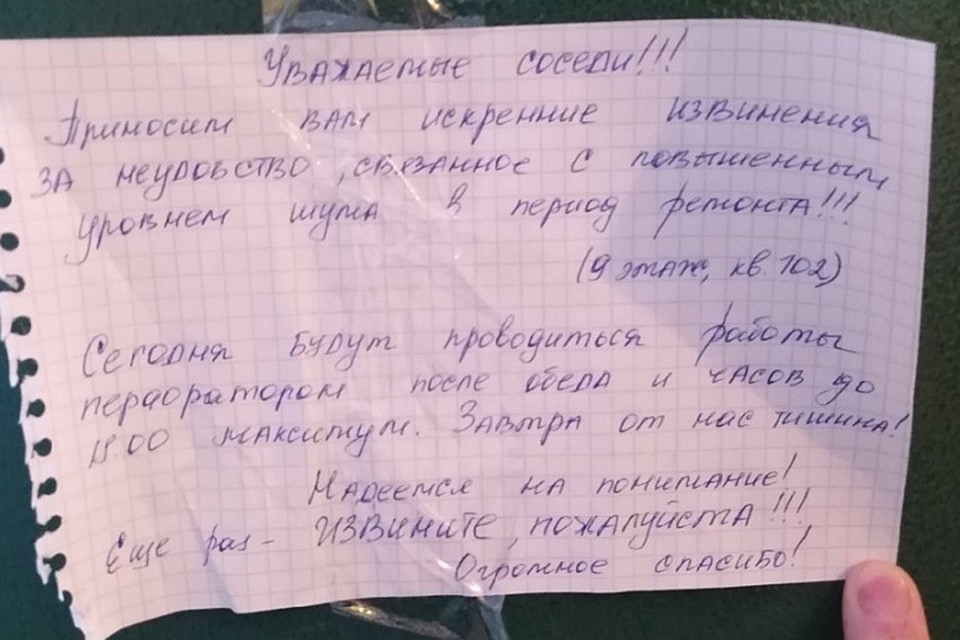 Уважаемые соседи!!!
Приносим вам искренние извинения
за неудобство, связанное с повышенным
уровнем шума в период ремонта!!!
(9 этаж, кв. 102)
Сегодня будут проводиться работы
перфоратором после обеда и часов до
18.00 максимум. Завтра от нас тишина!
Надеемся на понимание!
Еще раз - извините, пожалуйста!!!
Огромное спасибо!